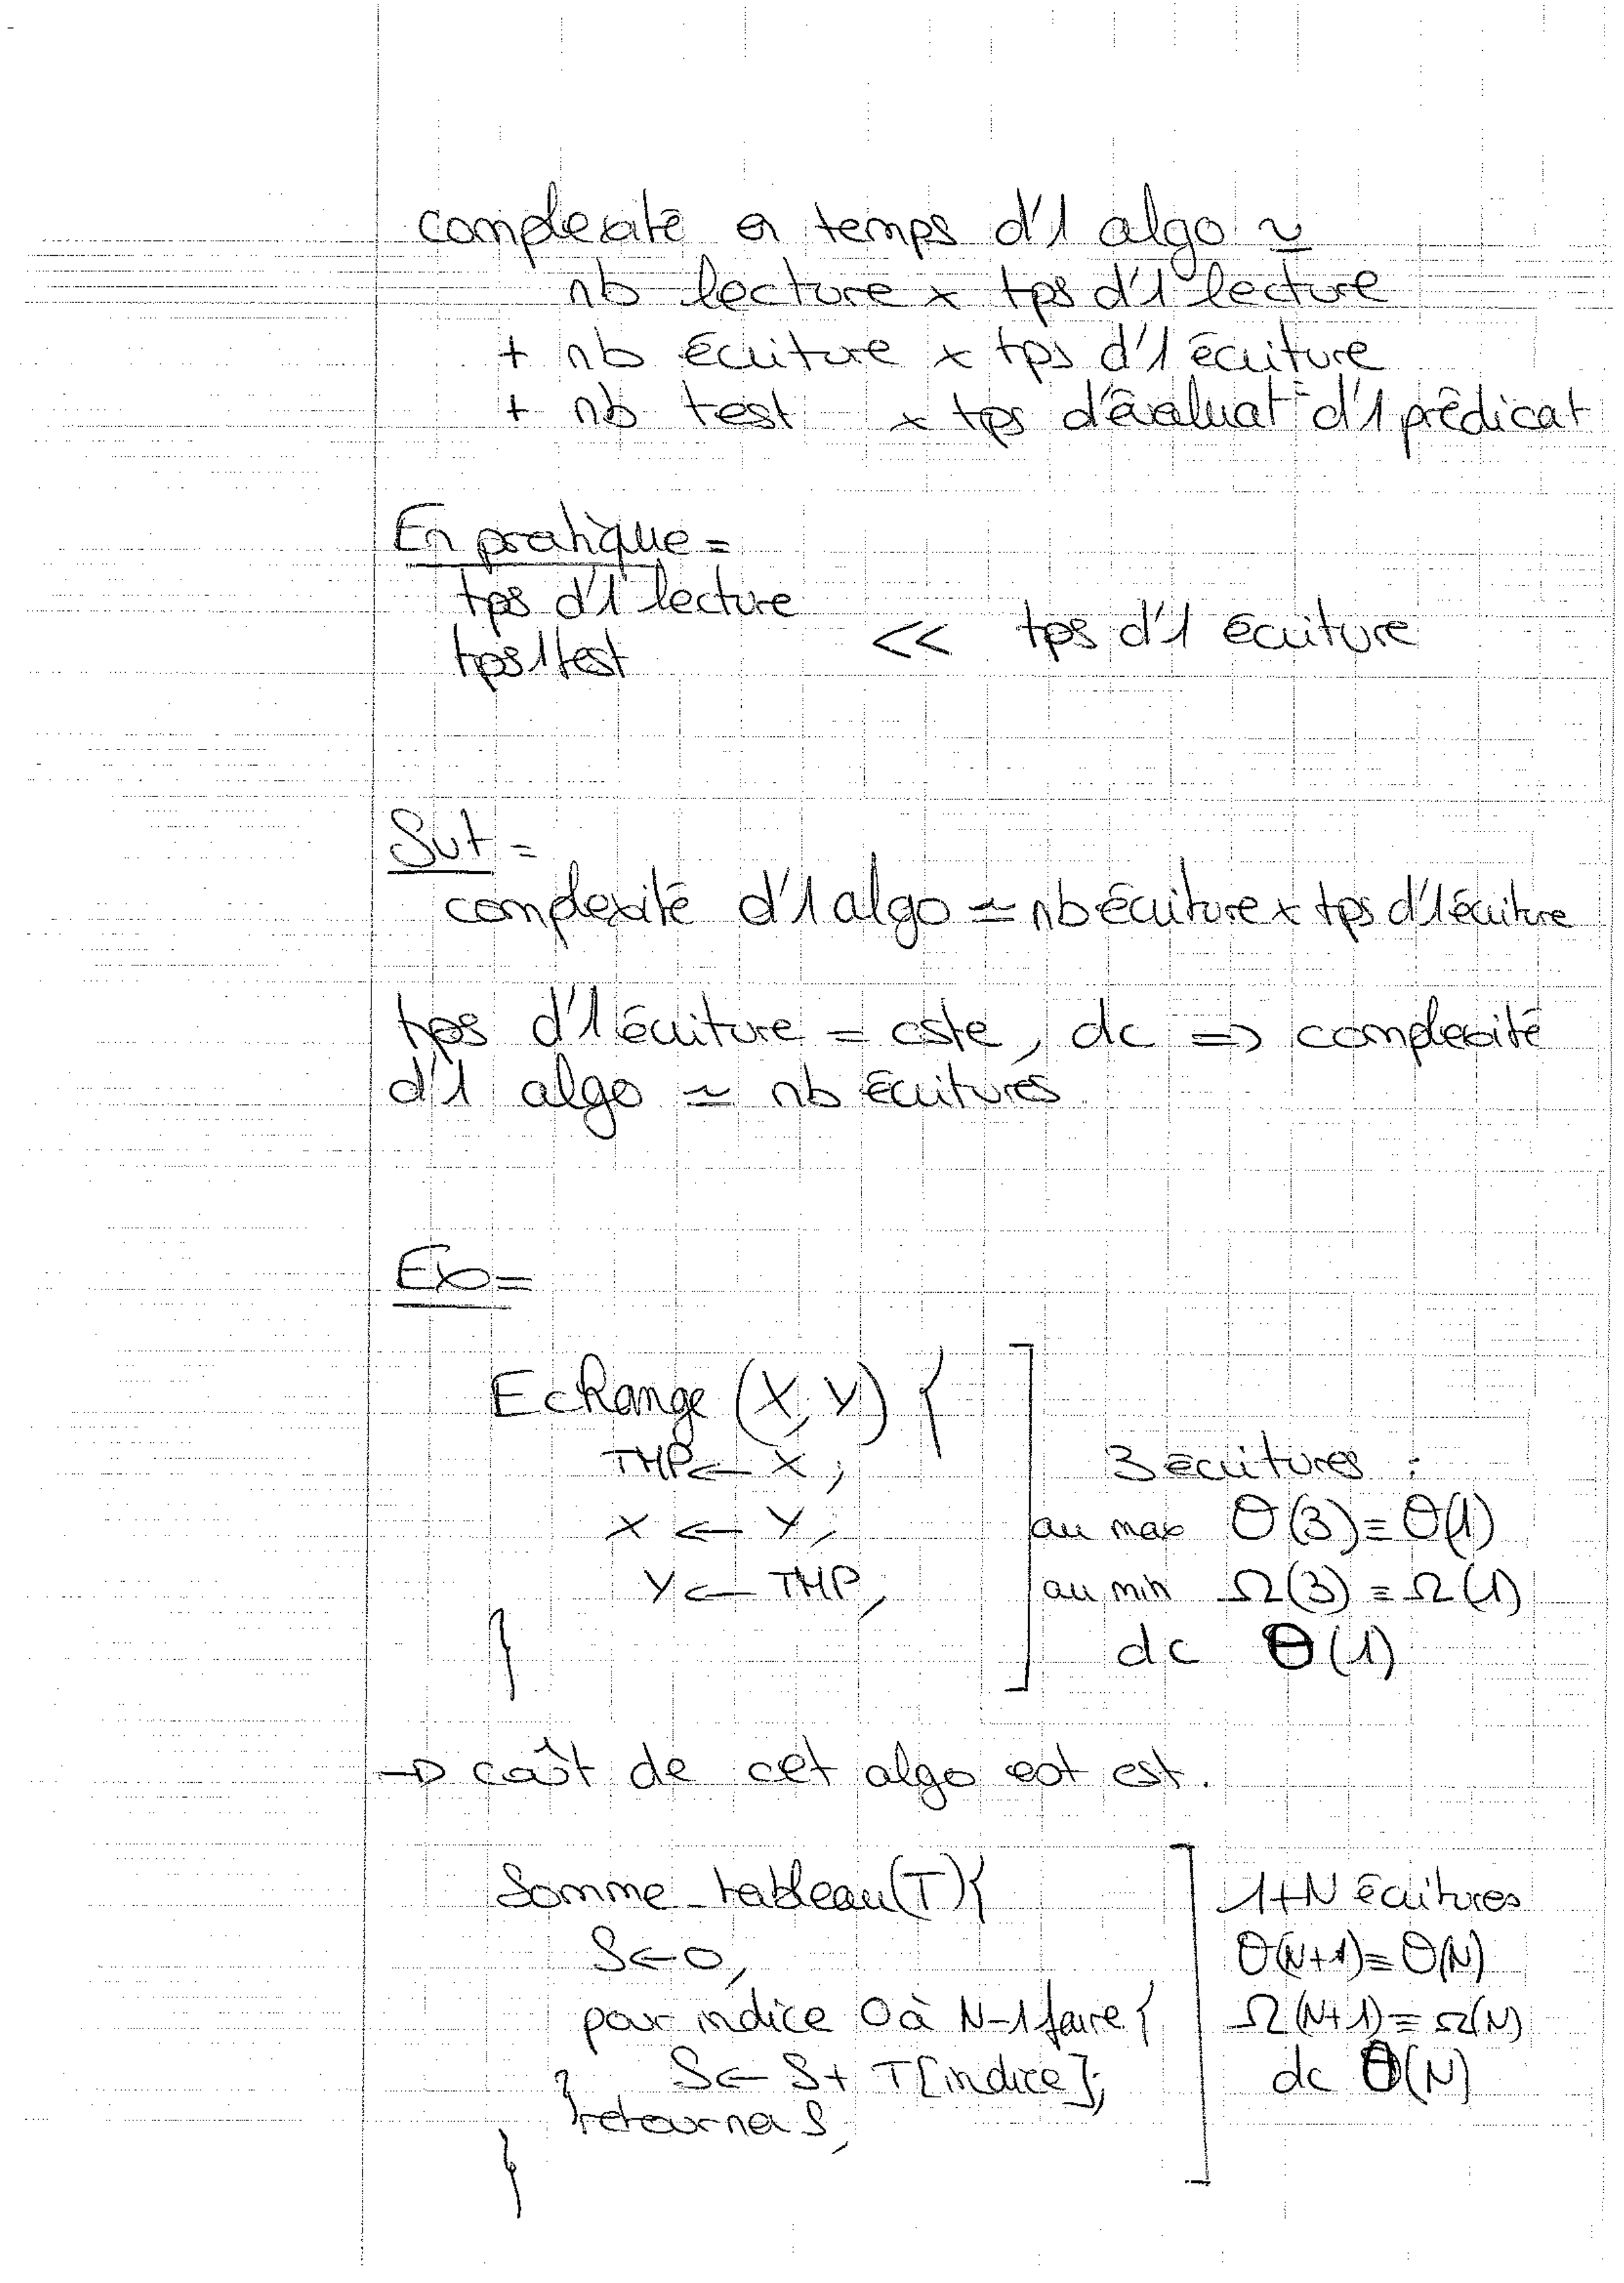 complexité en temps d'1 algo ≃
nb lecture x tps d'1 lecture
+ nb écriture x tps d'1 écriture
+ nb test x tps d'évaluat° d'1 prédicat
En pratique =
tps d'1 lecture
tps 1 test << tps d'1 écriture
Svt =
complexité d'1 algo ≃ nb écriture x tps d'1 écriture
tps d'1 écriture = cste, dc => complexité
d'1 algo ≃ nb écritures
Ex =
Echange (X, Y) {
TMP ← X ;
X ← Y ;
Y ← TMP ;
}
3 écritures :
au max O(3) ≡ O(1)
au min Ω(3) ≡ Ω(1)
dc Θ(1)
→ coût de cet algo est cst.
Somme_tableau(T){
S ← 0 ;
pour indice 0 à N-1 faire {
S ← S + T[indice] ;
}
retourner S ;
}
1+N écritures
O(N+1) ≡ O(N)
Ω(N+1) ≡ Ω(N)
dc Θ(N)